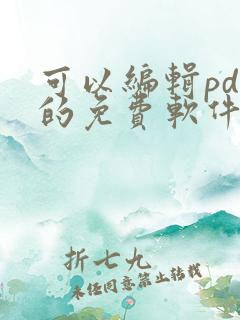 可以編輯pd
的免費軟件
折七九
未经同意禁止转载